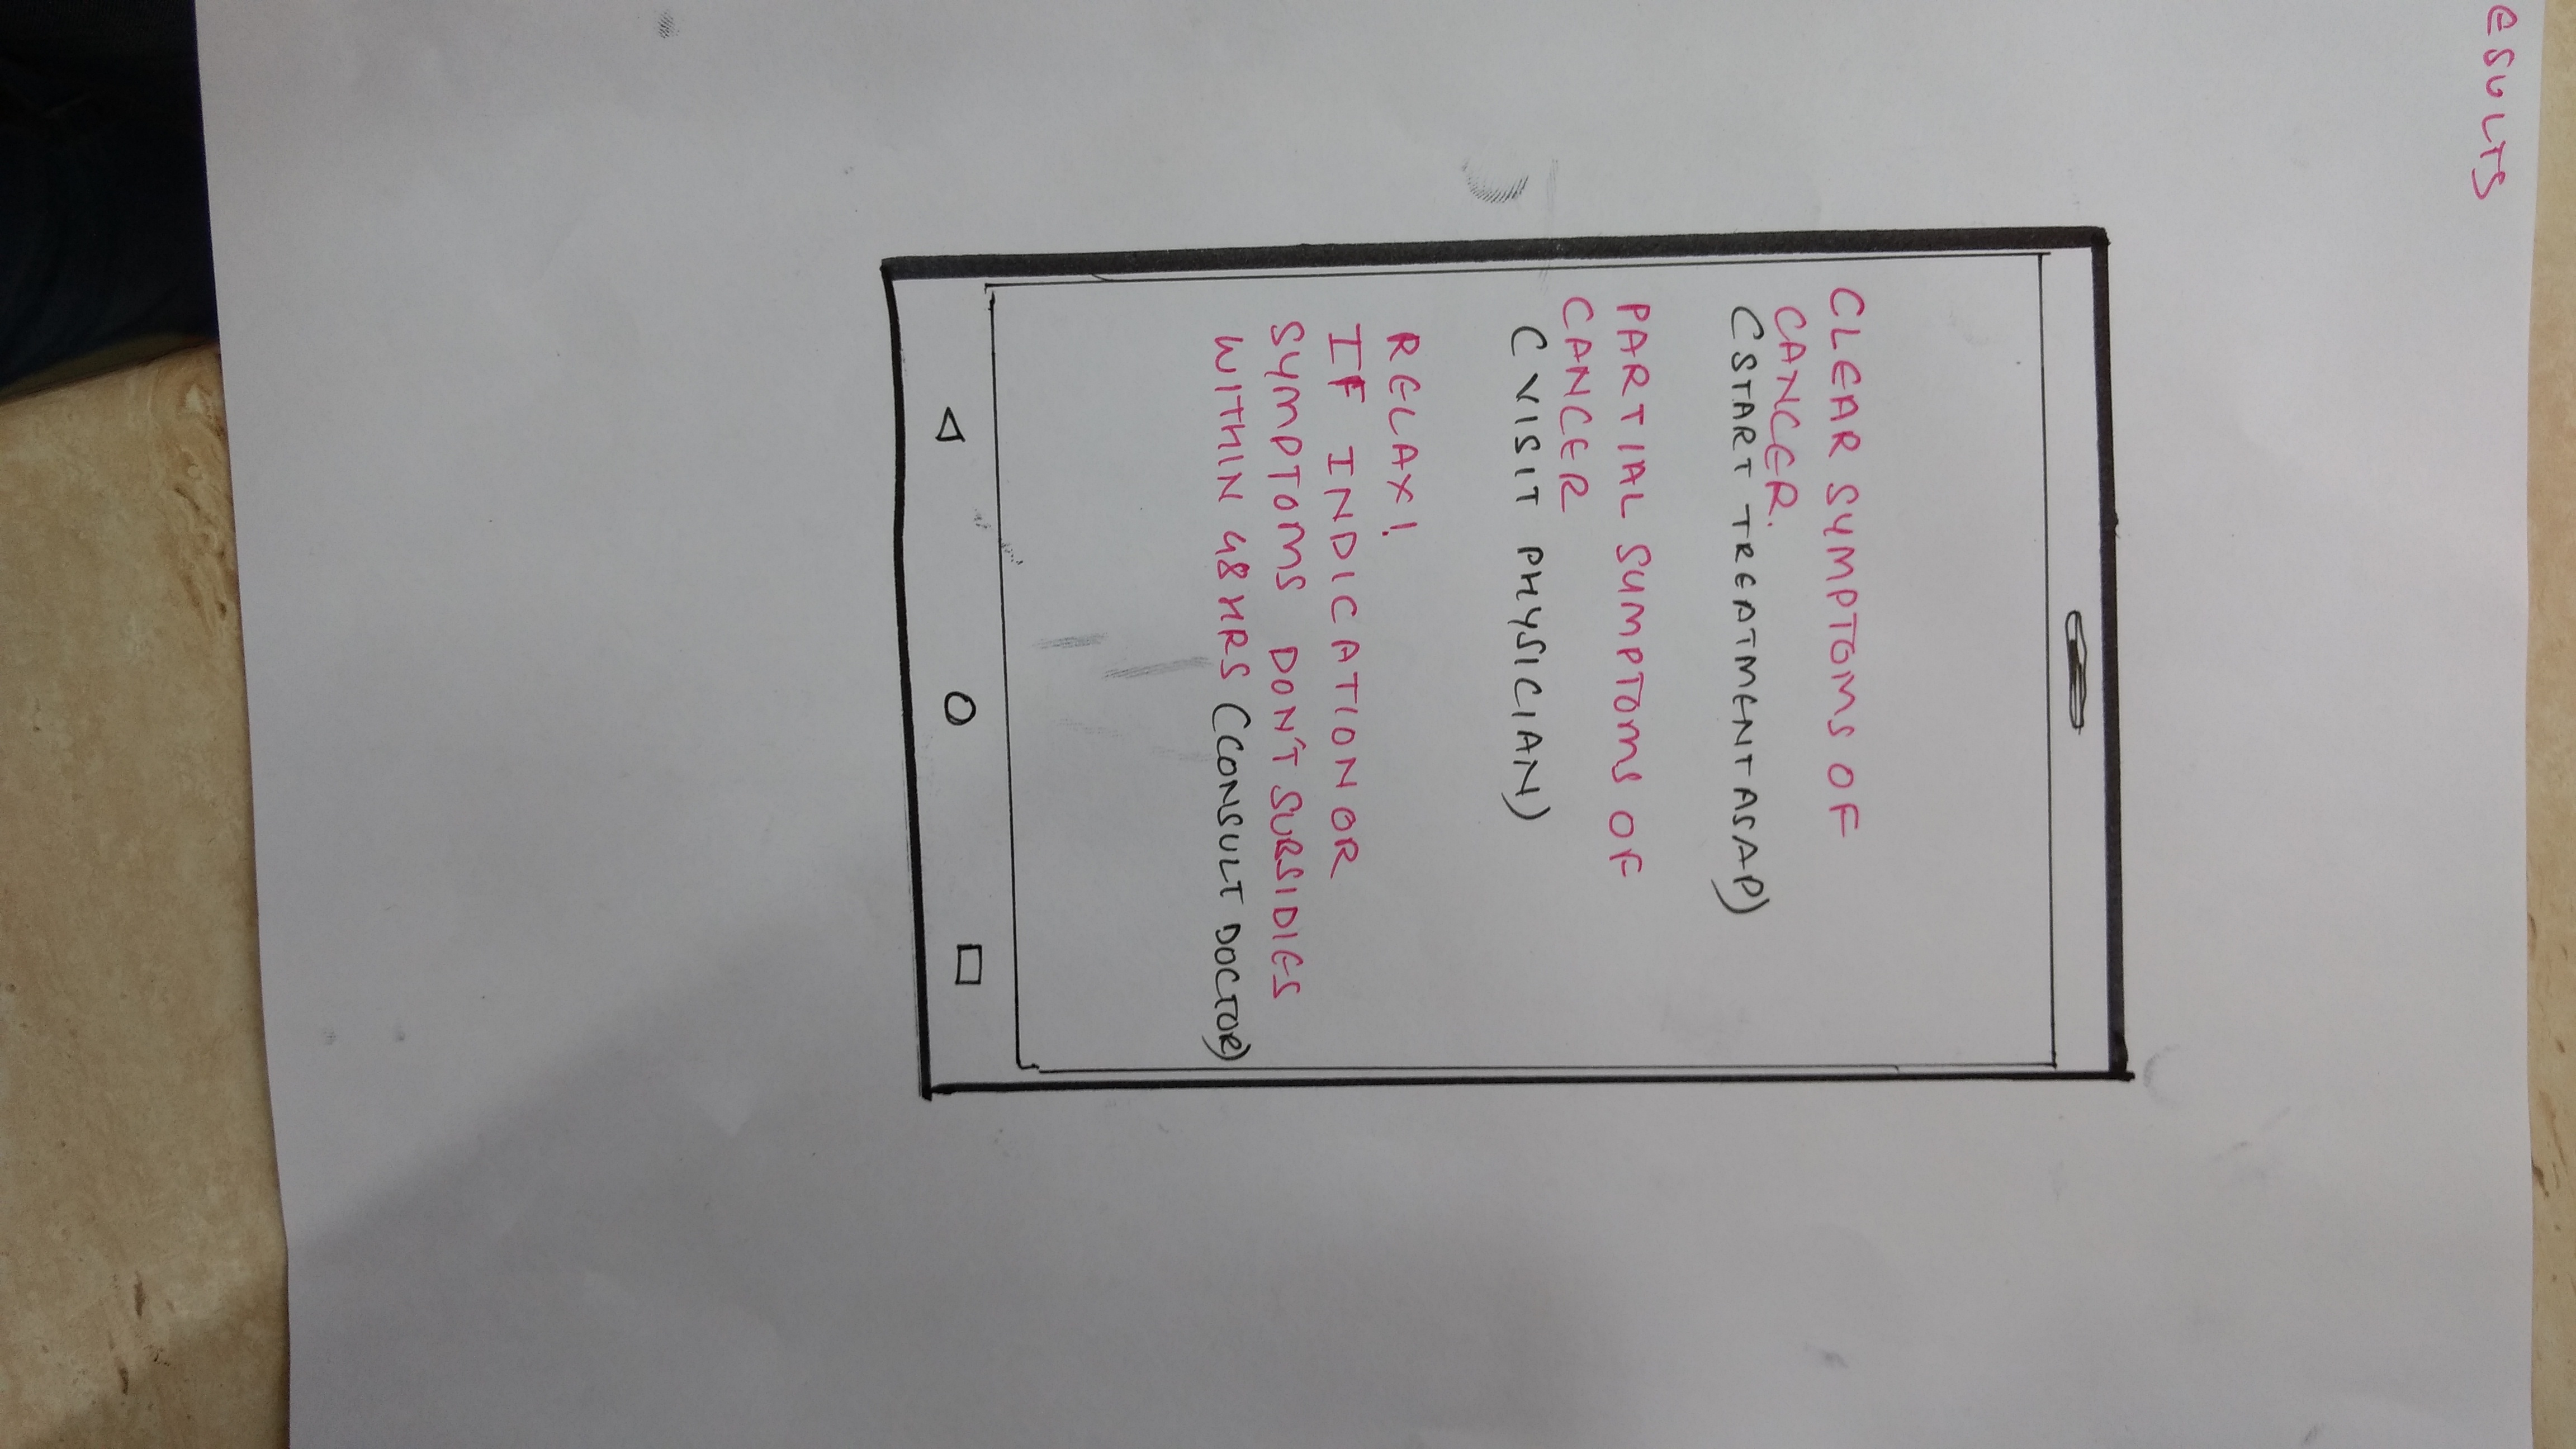 ESULTS
CLEAR SYMPTOMS OF
CANCER.
(START TREATMENT ASAP)
PARTIAL SUMPTOMS OF
CANCER
(VISIT PHYSICIAN)
RELAX!
IF INDICATION OR
SYMPTOMS DON'T SUBSIDIES
WITHIN 48 HRS (CONSULT DOCTOR)